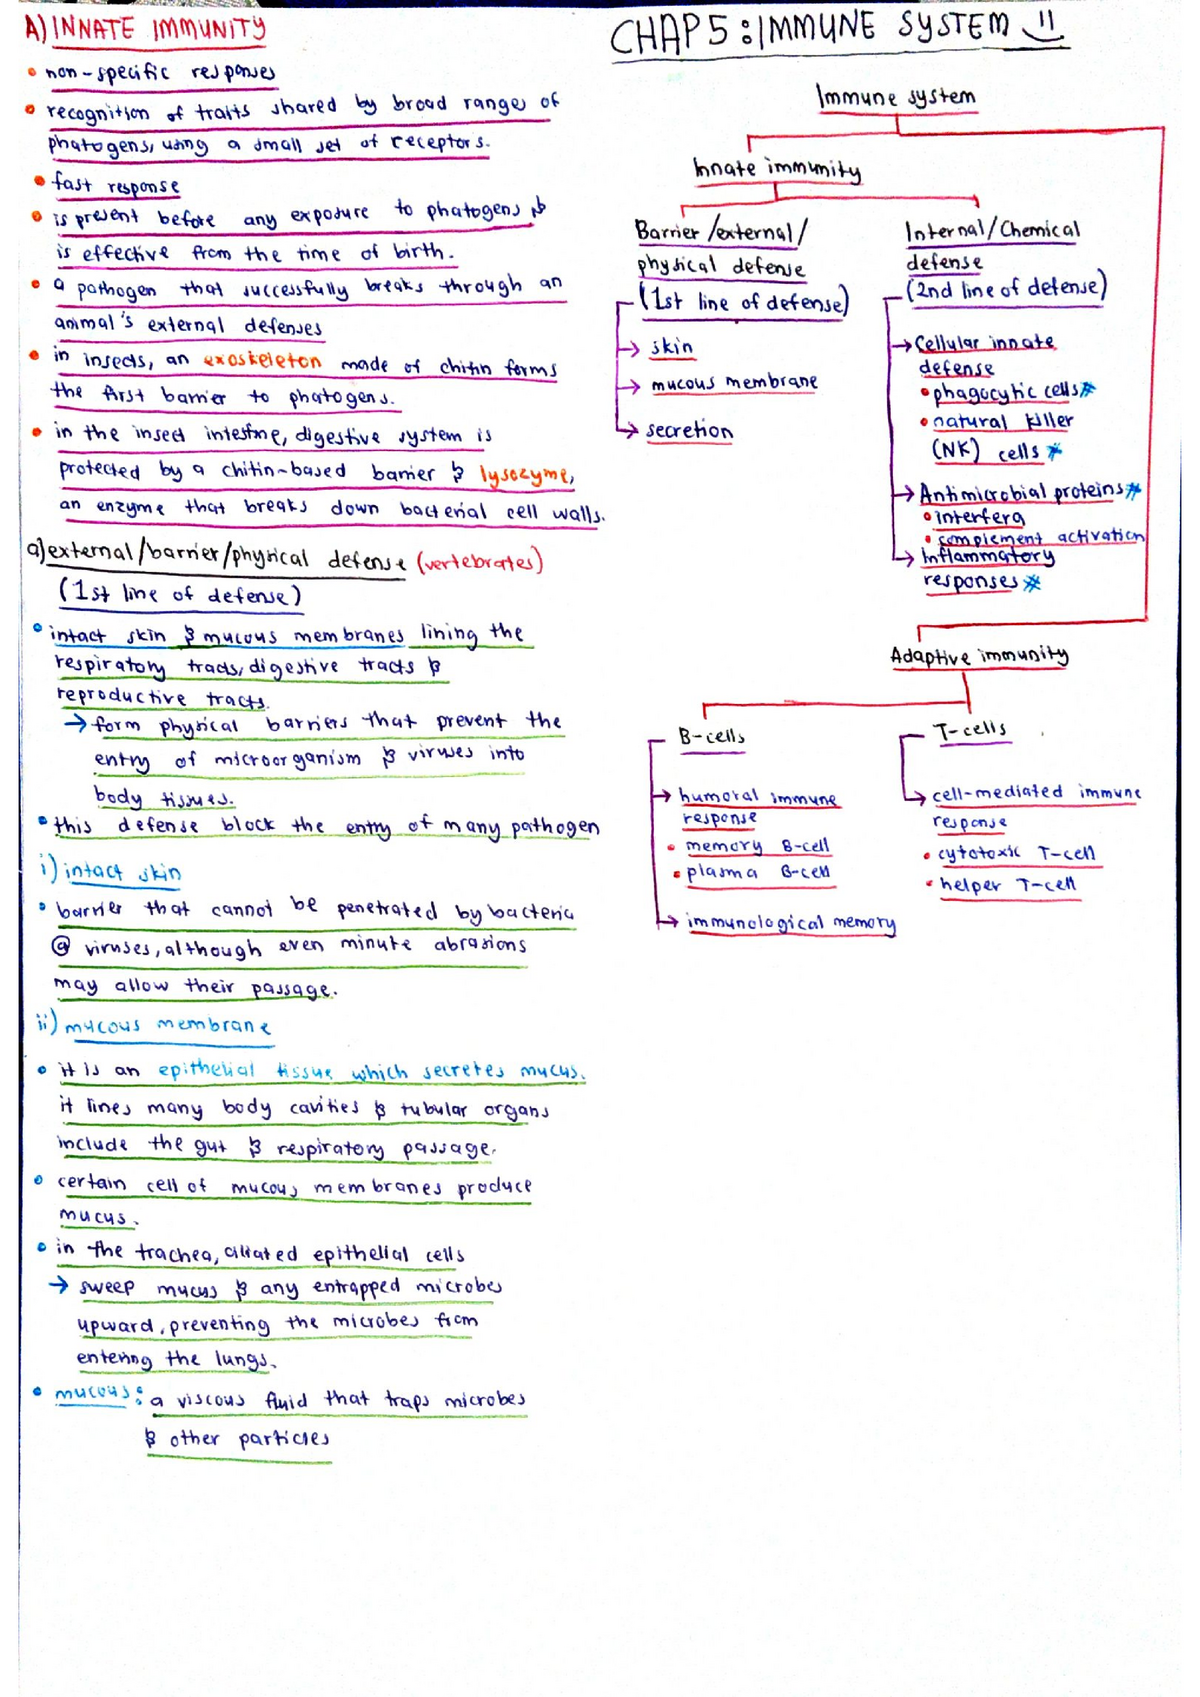 A) INNATE IMMUNITY
• non-specific responses
• recognition of traits shared by broad ranges of
phatogens, using a small set of receptors.
• fast response
• is present before any exposure to phatogens &
is effective from the time of birth.
• a pathogen that successfully breaks through an
animal's external defenses
• in insects, an exoskeleton made of chitin forms
the first barrier to phatogens.
• in the insect intestine, digestive system is
protected by a chitin-based barrier & lysozyme,
an enzyme that breaks down bacterial cell walls.
a) external/barrier/physical defense (vertebrates)
(1st line of defense)
• intact skin & mucous membranes lining the
respiratory tracts, digestive tracts &
reproductive tracts.
→ form physical barriers that prevent the
entry of microorganism & viruses into
body tissues.
• this defense block the entry of many pathogen
i) intact skin
• barrier that cannot be penetrated by bacteria
@ viruses, although even minute abrasions
may allow their passage.
ii) mucous membrane
• it is an epithelial tissue which secretes mucus.
it lines many body cavities & tubular organs
include the gut & respiratory passage.
• certain cell of mucous membranes produce
mucus.
• in the trachea, ciliated epithelial cells
→ sweep mucus & any entrapped microbes
upward, preventing the microbes from
entering the lungs.
• mucous: a viscous fluid that traps microbes
& other particles
CHAP 5: IMMUNE SYSTEM
Immune system
Innate immunity
Barrier/external/
physical defense
(1st line of defense)
→ skin
→ mucous membrane
→ secretion
Internal/Chemical
defense
(2nd line of defense)
→ Cellular innate
defense
• phagocytic cells*
• natural killer
(NK) cells *
→ Antimicrobial proteins*
• interfera
• complement activation
→ Inflammatory
responses *
Adaptive immunity
B-cells
→ humoral immune
response
• memory B-cell
• plasma B-cell
→ immunological memory
T-cells
→ cell-mediated immune
response
• cytotoxic T-cell
• helper T-cell